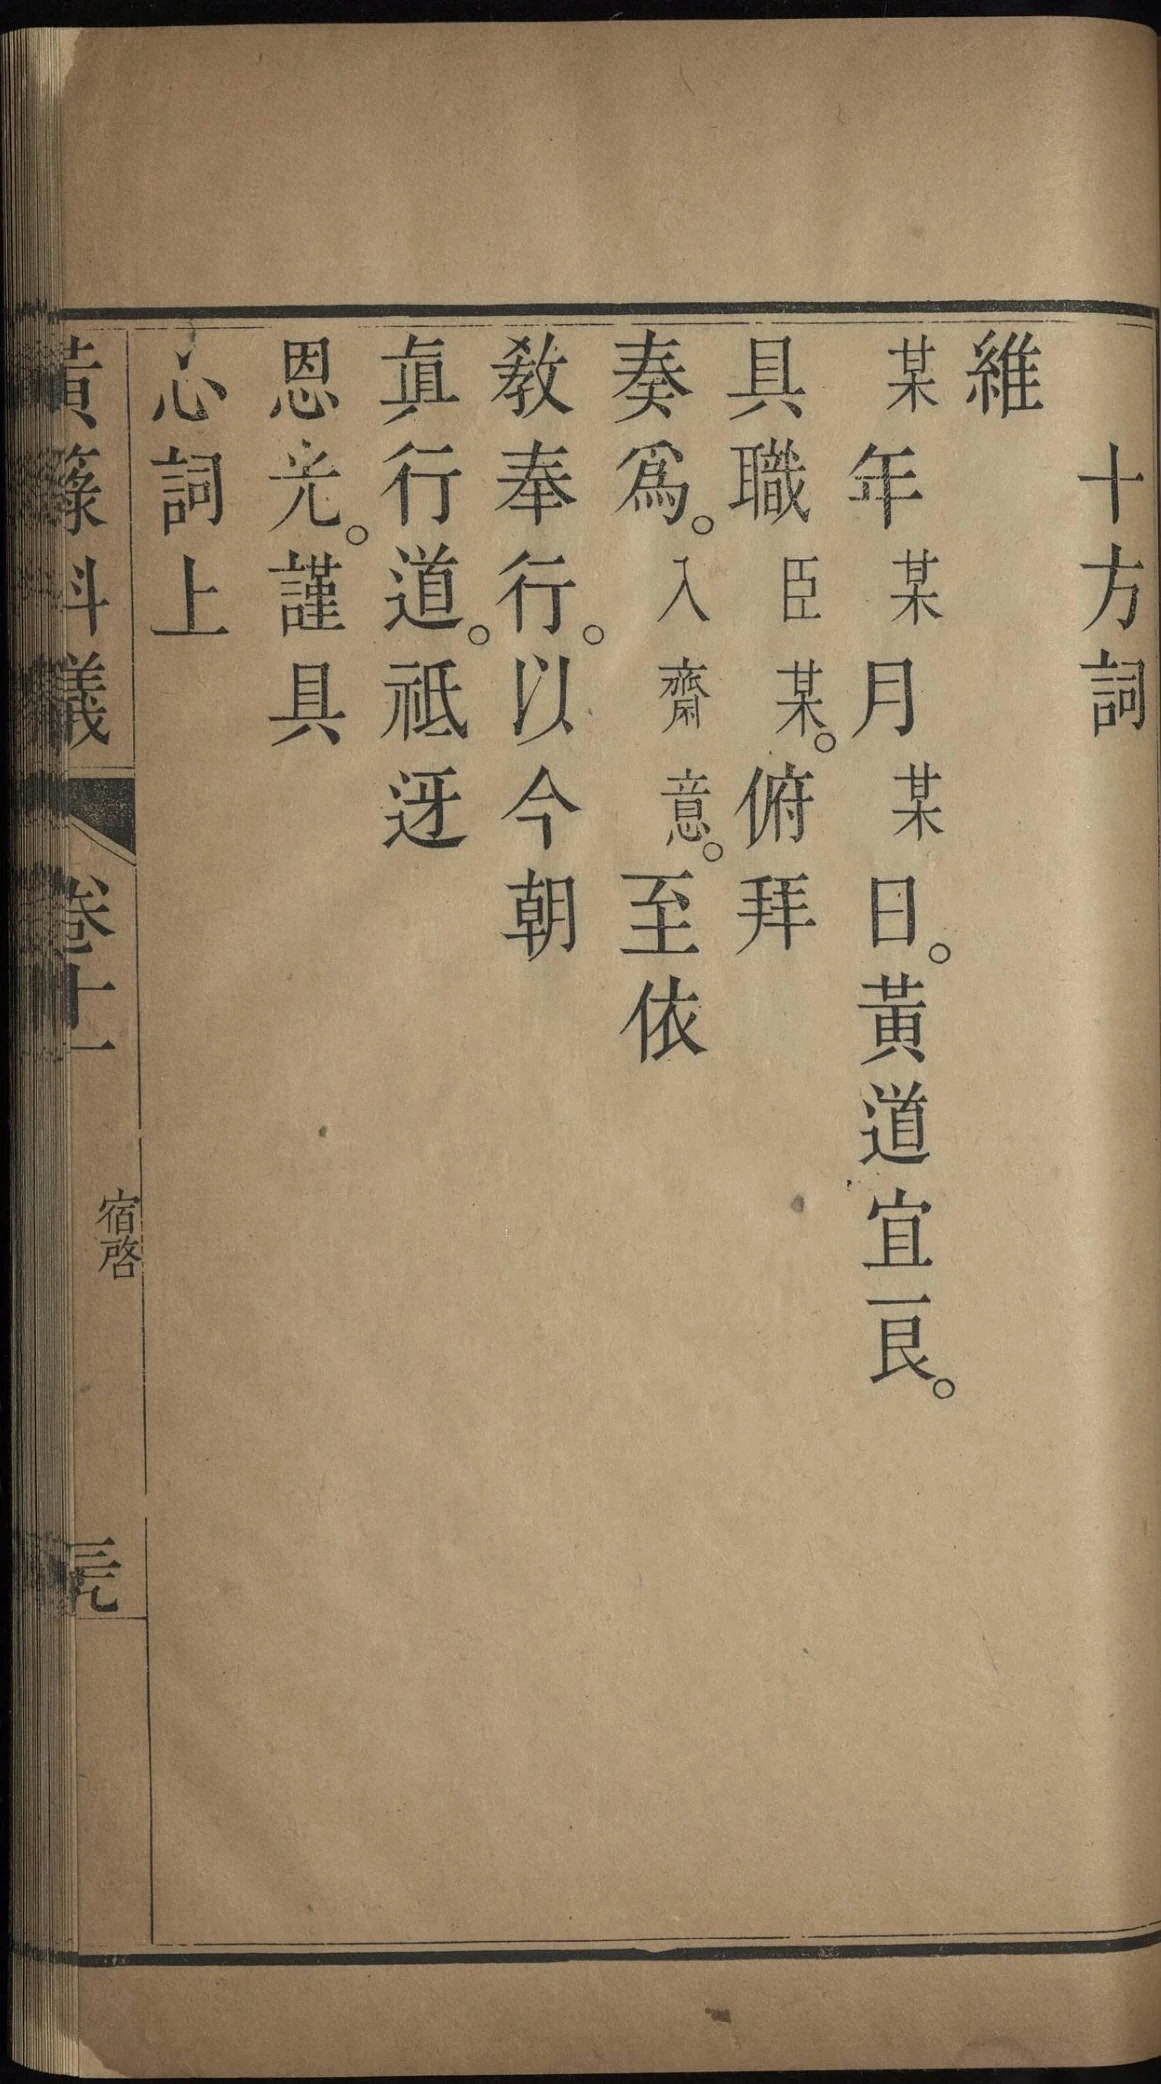 十方詞
維
某年某月某日。黃道宜良。
具職臣某。俯拜
奏爲。入齋意。至依
敎奉行。以今朝
眞行道。祗迓
恩光。謹具
心詞上
黃籙科儀 卷十一 宿啓 三元